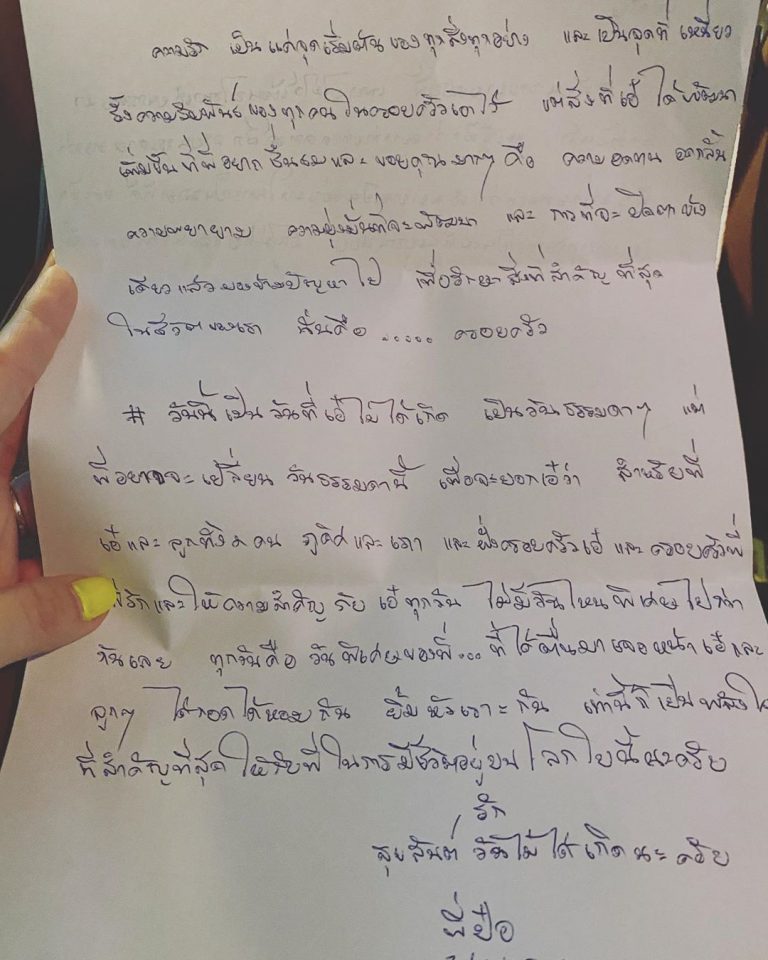 ความรัก เป็นแค่จุดเริ่มต้นของทุกสิ่งทุกอย่าง และเป็นจุดที่เหนี่ยว
รั้งความสัมพันธ์ของทุกคนในครอบครัวเอาไว้ แต่สิ่งที่เอ๋ได้พัฒนา
เพิ่มขึ้นที่พี่อยากชื่นชมและขอบคุณมากๆ คือ ความอดทน อดกลั้น
ความพยายาม ความมุ่งมั่นที่จะพัฒนา และ การที่จะปิดตาข้าง
เดียวแล้วมองข้ามปัญหาไป เพื่อรักษาสิ่งที่สำคัญที่สุด
ในชีวิตของเรา นั่นคือ ..... ครอบครัว
# วันนี้เป็นวันที่เอ๋ไม่ได้เกิด เป็นวันธรรมดาๆ แต่
พี่อยากจะเปลี่ยน วันธรรมดานี้ เพื่อจะบอกเอ๋ว่า สำหรับพี่
เอ๋และลูกทั้ง คน ภูคิศและเภา และฝั่งครอบครัวเอ๋และครอบครัวพี่
พี่รักและให้ความสำคัญกับเอ๋ทุกวัน ไม่มีวันไหนพิเศษไปกว่า
กันเลย ทุกวันคือ วันพิเศษของพี่... ที่ได้ตื่นมาเจอหน้าเอ๋และ
ลูกๆ ได้กอดได้หอมกัน ยิ้มหัวเราะกัน เท่านี้ก็เป็นพลังใจ
ที่สำคัญที่สุดให้กับพี่ในการมีชีวิตอยู่บนโลกใบนี้นะครับ
รัก
สุขสันต์วันไม่ได้เกิดนะครับ
พี่ป๋อ